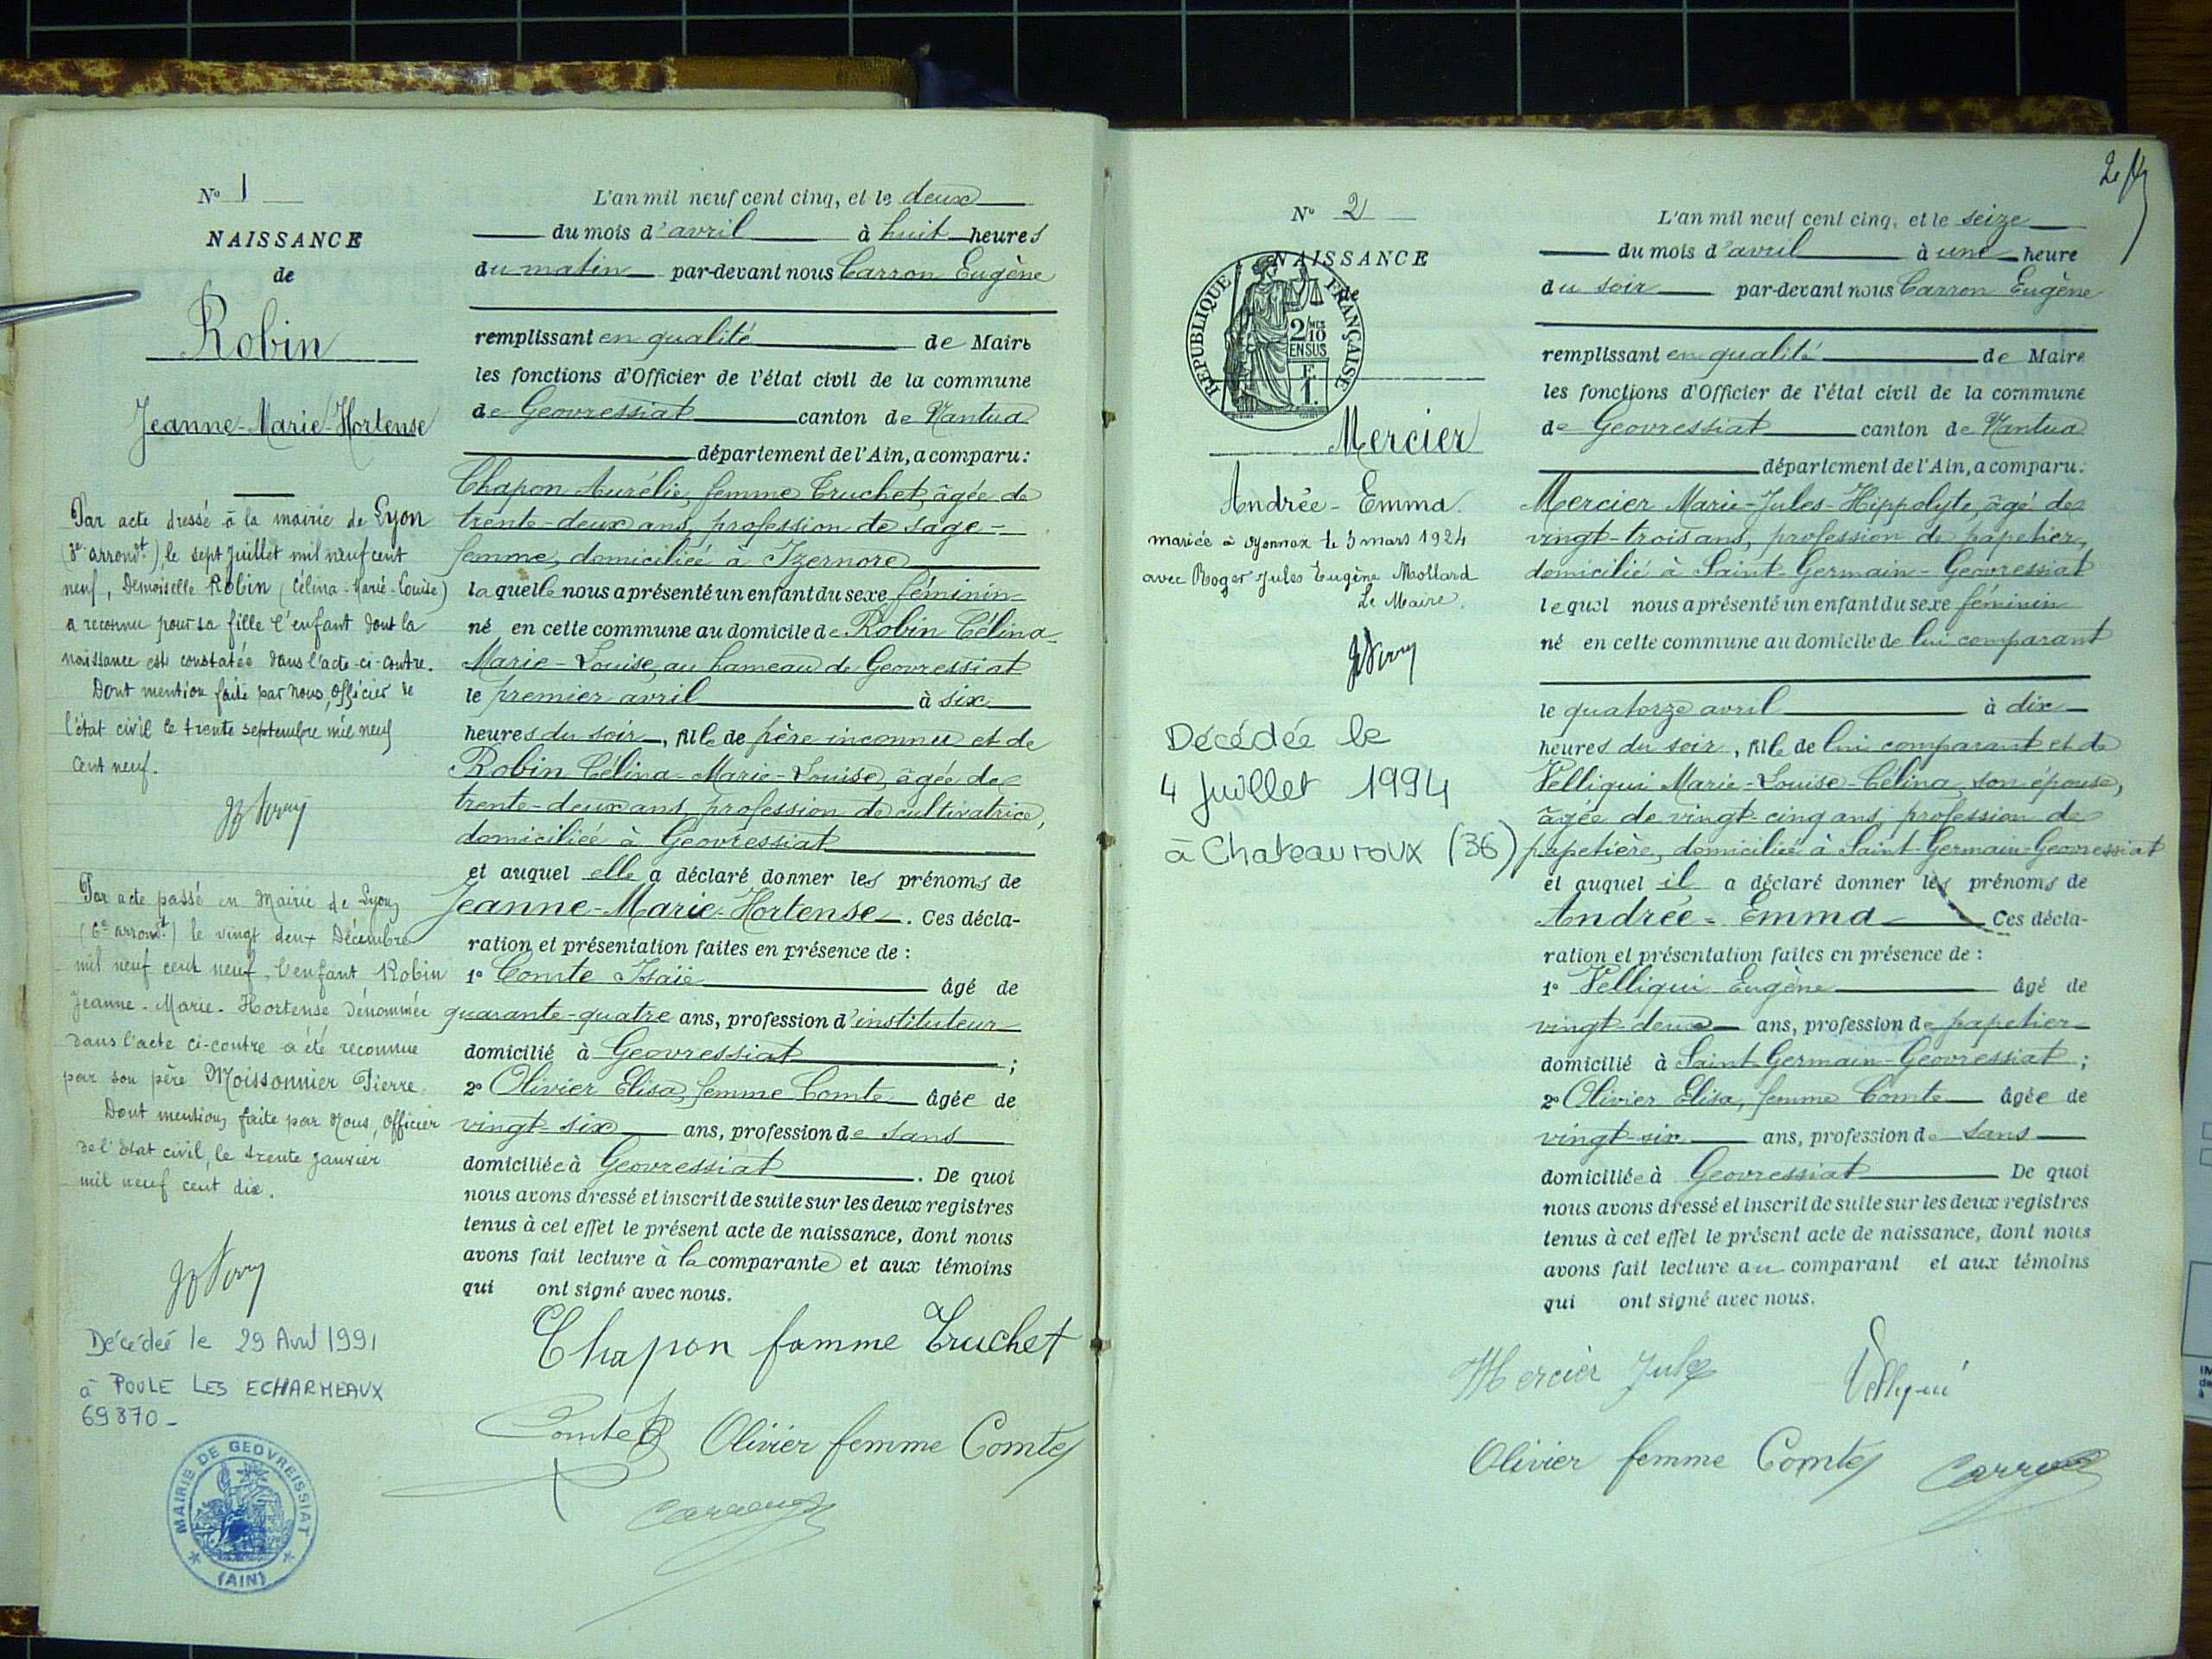 N° 1
NAISSANCE
de
Robin
Jeanne-Marie-Hortense
Par acte dressé à la mairie de Lyon
(3e arrondt), le sept Juillet mil neuf cent
neuf, Demoiselle Robin (Célina-Marie-Louise)
a reconnu pour sa fille l'enfant dont la
naissance est constatée dans l'acte ci-contre.
Dont mention faite par nous, Officier de
l'état civil le trente septembre mil neuf
cent neuf.
Par acte passé en Mairie de Lyon
(6e arrondt) le vingt deux Décembre
mil neuf cent neuf, l'enfant Robin
Jeanne-Marie-Hortense dénommée
dans l'acte ci-contre a été reconnue
par son père Moissonnier Pierre
Dont mention faite par Nous, Officier
de l'Etat civil, le trente janvier
mil neuf cent dix.
Décédée le 29 Avril 1991
à POULE LES ECHARMEAUX
69870-
MAIRIE DE GEOVREISSIAT
(AIN)
L'an mil neuf cent cinq, et le deux
du mois d'avril à huit heures
du matin par-devant nous Carron Eugène
remplissant en qualité de Maire
les fonctions d'Officier de l'état civil de la commune
de Geovressiat canton de Nantua
département de l'Ain, a comparu:
Chapon Aurélie, femme Truchet, âgée de
trente-deux ans, profession de sage-
femme, domiciliée à Izernore
laquelle nous a présenté un enfant du sexe féminin
né en cette commune au domicile de Robin Célina
Marie-Louise, au hameau de Geovressiat
le premier avril à six
heures du soir, fille de père inconnu et de
Robin Célina-Marie-Louise, âgée de
trente-deux ans, profession de cultivatrice,
domiciliée à Géovressiat
et auquel elle a déclaré donner les prénoms de
Jeanne-Marie-Hortense. Ces décla-
ration et présentation faites en présence de :
1° Comte Isaïe âgé de
quarante-quatre ans, profession d'instituteur
domicilié à Geovressiat ;
2° Olivier Elisa, femme Comte âgée de
vingt-six ans, profession de sans
domiciliée à Geovressiat. De quoi
nous avons dressé et inscrit de suite sur les deux registres
tenus à cet effet le présent acte de naissance, dont nous
avons fait lecture à la comparante et aux témoins
qui ont signé avec nous.
Chapon famme Truchet
Comte
Olivier femme Comte
N° 2
NAISSANCE
de
REPUBLIQUE FRANÇAISE
2/10
MES
EN SUS
F.
1.
Mercier
Andrée-Emma
mariée à Oyonnax le 3 mars 1924
avec Roger Jules Eugène Mollard
Le Maire.
Décédée le
4 Juillet 1994
à Chateauroux (36)
2
L'an mil neuf cent cinq, et le seize
du mois d'avril à une heure
du soir par-devant nous Carron Eugène
remplissant en qualité de Maire
les fonctions d'Officier de l'état civil de la commune
de Geovressiat canton de Nantua
département de l'Ain, a comparu:
Mercier Marie-Jules-Hippolyte, âgé de
vingt-trois ans, profession de papetier,
domicilié à Saint-Germain-Géovressiat
lequel nous a présenté un enfant du sexe féminin
né en cette commune au domicile de lui comparant
le quatorze avril à dix
heures du soir, fille de lui comparant et de
Velliqui Marie-Louise-Célina, son épouse,
âgée de vingt-cinq ans, profession de
papetière, domiciliée à Saint-Germain-Geovressiat
et auquel il a déclaré donner les prénoms de
Andrée-Emma Ces décla-
ration et présentation faites en présence de :
1° Velliqui Eugène âgé de
vingt-deux ans, profession de papetier
domicilié à Saint-Germain-Geovressiat ;
2° Olivier Elisa, femme Comte âgée de
vingt-six ans, profession de sans
domiciliée à Geovressiat De quoi
nous avons dressé et inscrit de suite sur les deux registres
tenus à cet effet le présent acte de naissance, dont nous
avons fait lecture au comparant et aux témoins
qui ont signé avec nous.
Mercier Jules
Velliqui
Olivier femme Comte
Carron